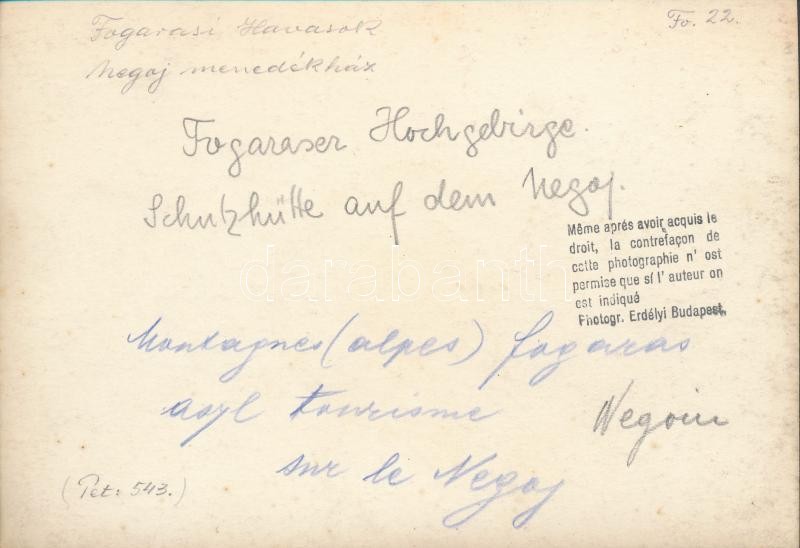 Fogarasi Havasok
Fo. 22.
Negoj menedékház
Fogaraser Hochgebirge.
Schutzhütte auf dem Negoj.
Même aprés avoir acquis le
droit, la contrefaçon de
cette photographie n' ost
permise que sí l' auteur on
est indiqué
Photogr. Erdélyi Budapest.
darabanth
Montagnes (alpes) fogaras
asyl tourisme
Negoiu
sur le Negoj
(Pct: 543.)